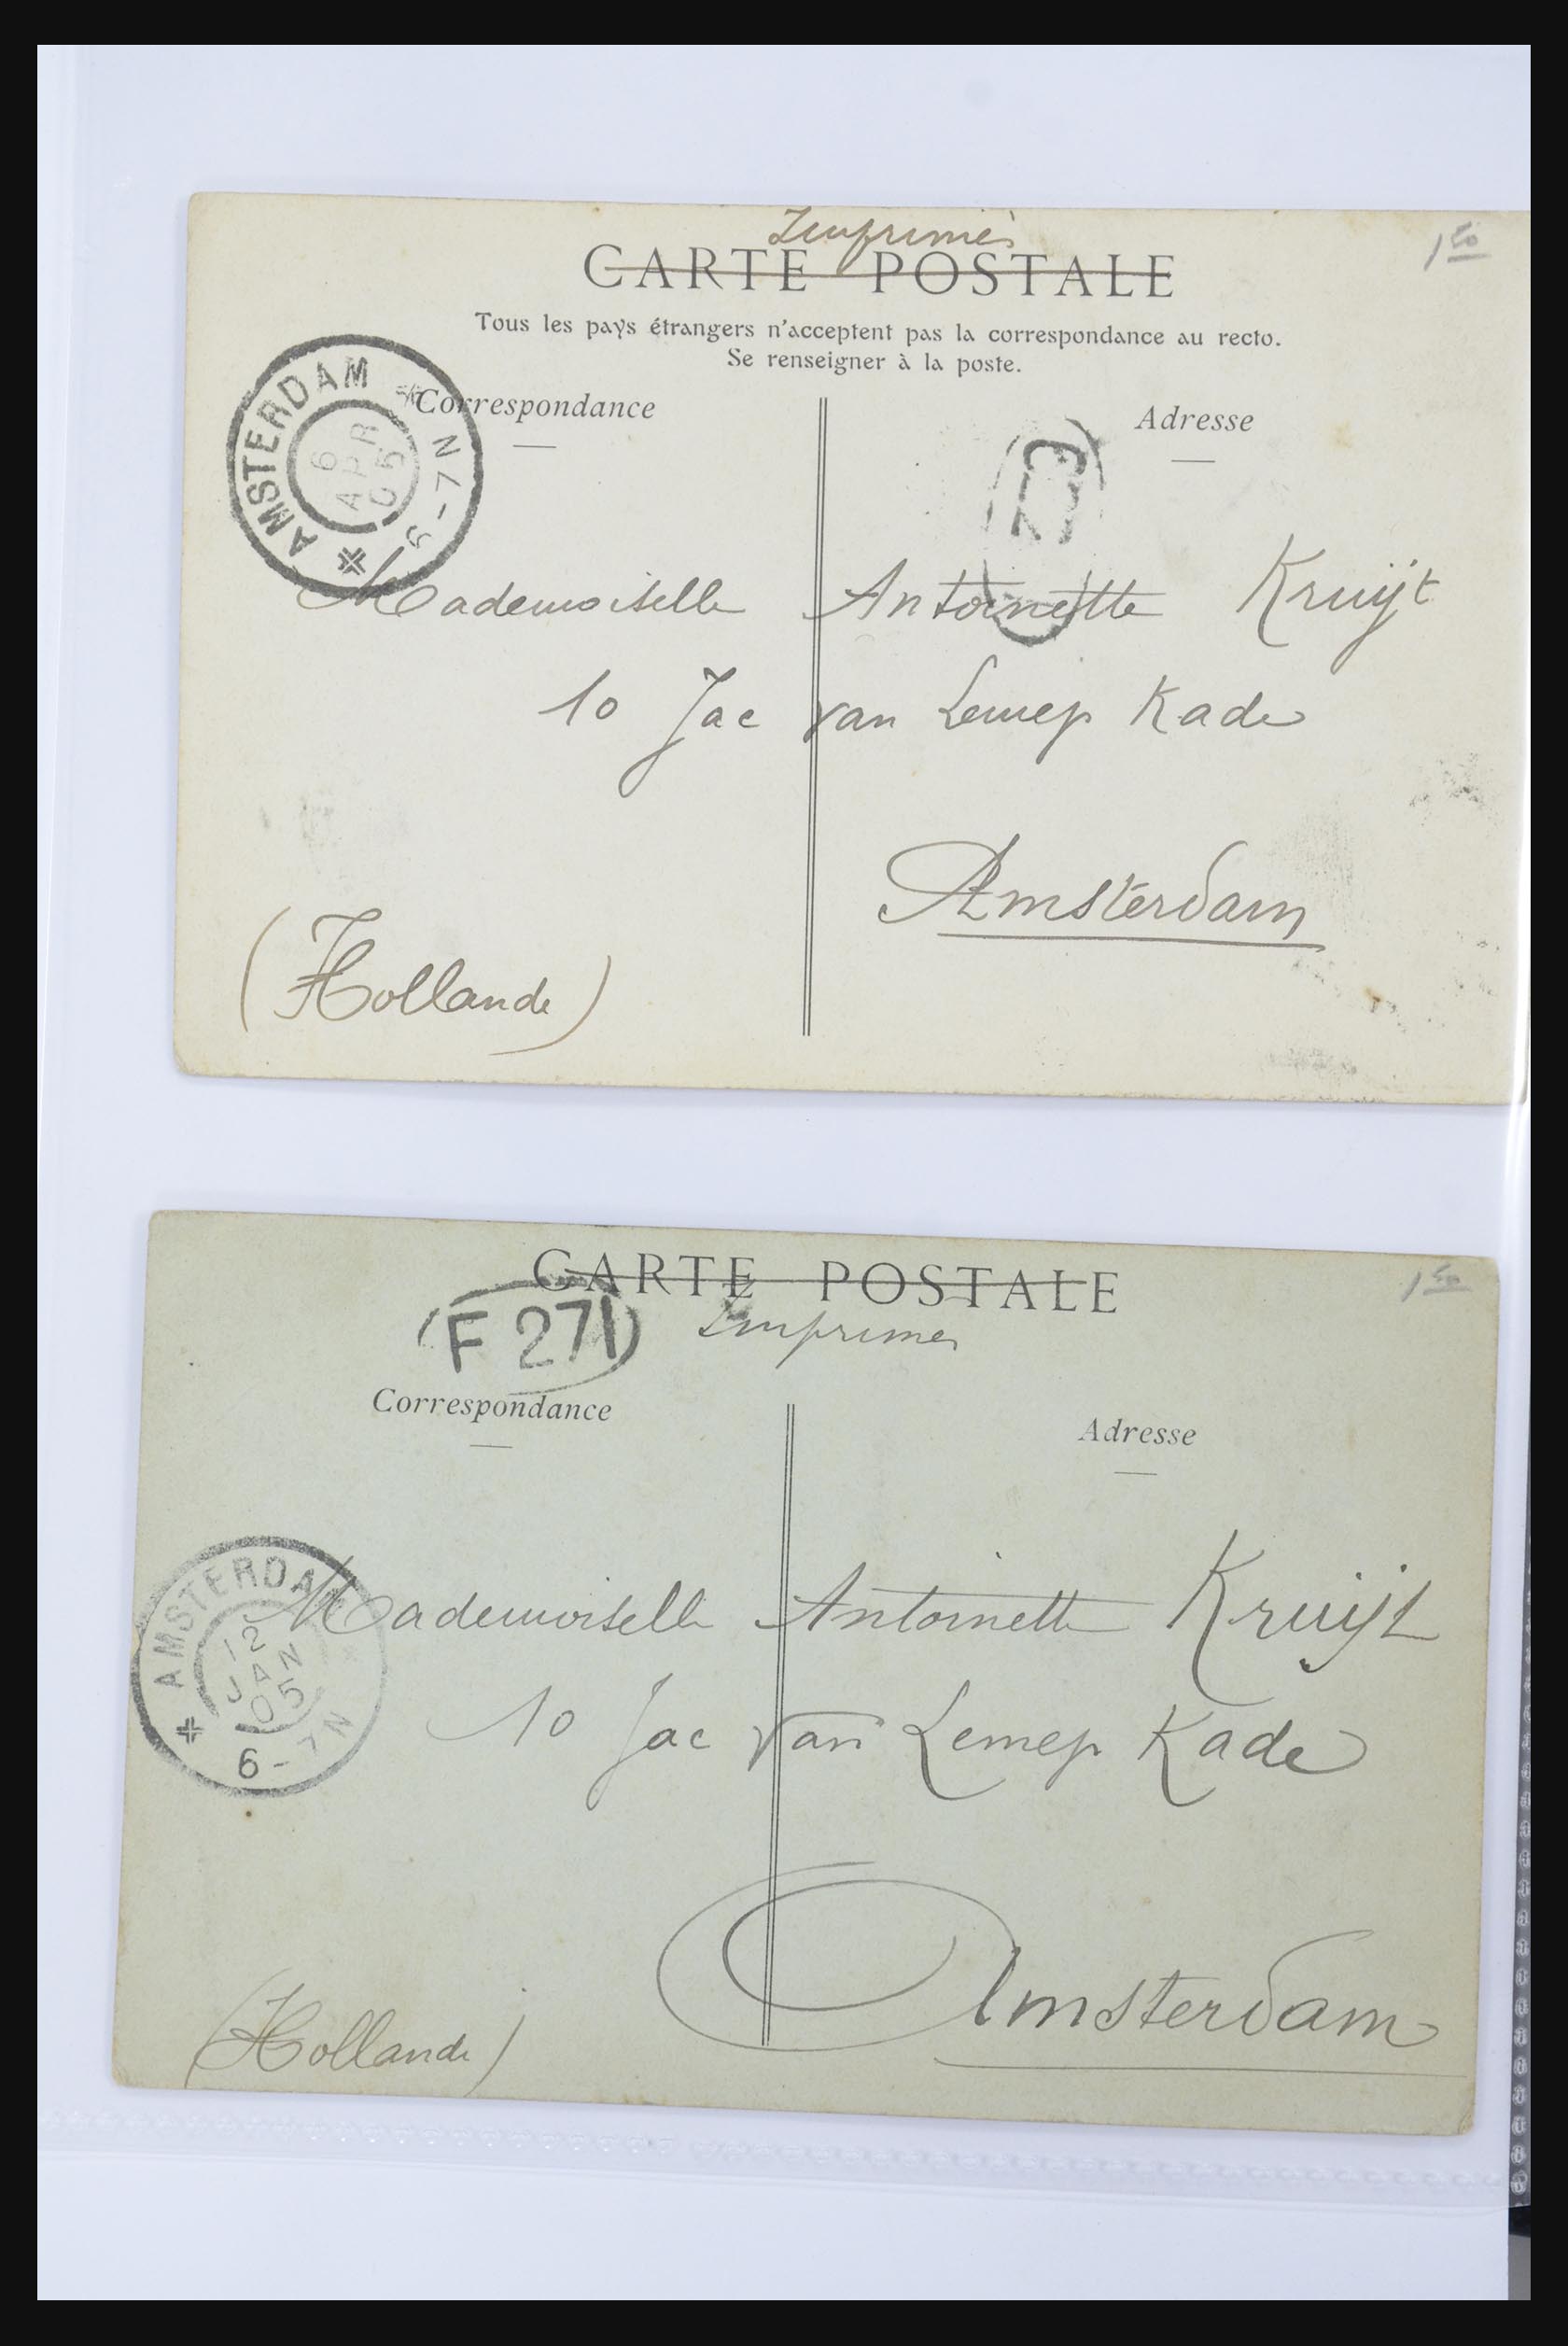 Imprimés
CARTE POSTALE
1 50
Tous les pays étrangers n'acceptent pas la correspondance au recto.
Se renseigner à la poste.
Correspondance
Adresse
AMSTERDAM
6 APR 05
6-7N
Mademoiselle Antoinette Kruijt
10 Jac van Lennep Kade
Amsterdam
(Hollande)
CARTE POSTALE
1 50
F 271
Imprimés
Correspondance
Adresse
AMSTERDAM
12 JAN 05
6-7N
Mademoiselle Antoinette Kruijt
10 Jac van Lennep Kade
Amsterdam
(Hollande)